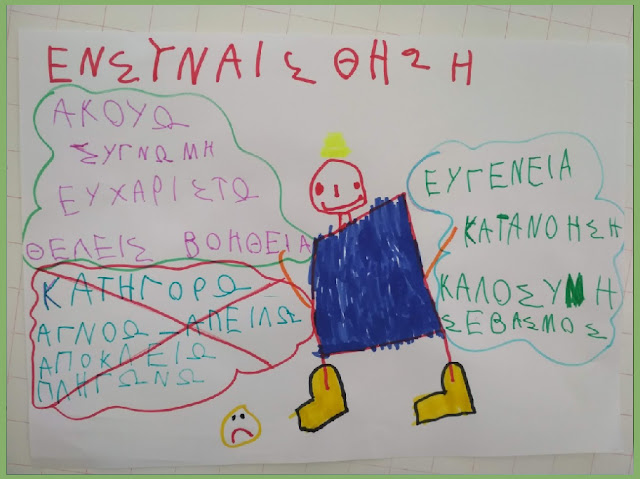 ΕΝΣΥΝΑΙΣΘΗΣΗ
ΑΚΟΥΩ
ΣΥΓΝΩΜΗ
ΕΥΧΑΡΙΣΤΩ
ΘΕΛΕΙΣ ΒΟΗΘΕΙΑ
ΚΑΤΗΓΟΡΩ
ΑΓΝΟΩ - ΑΠΕΙΛΩ
ΑΠΟΚΛΕΙΩ
ΠΛΗΓΩΝΩ
ΕΥΓΕΝΕΙΑ
ΚΑΤΑΝΟΗΣΗ
ΚΑΛΟΣΥΝΗ
ΣΕΒΑΣΜΟΣ